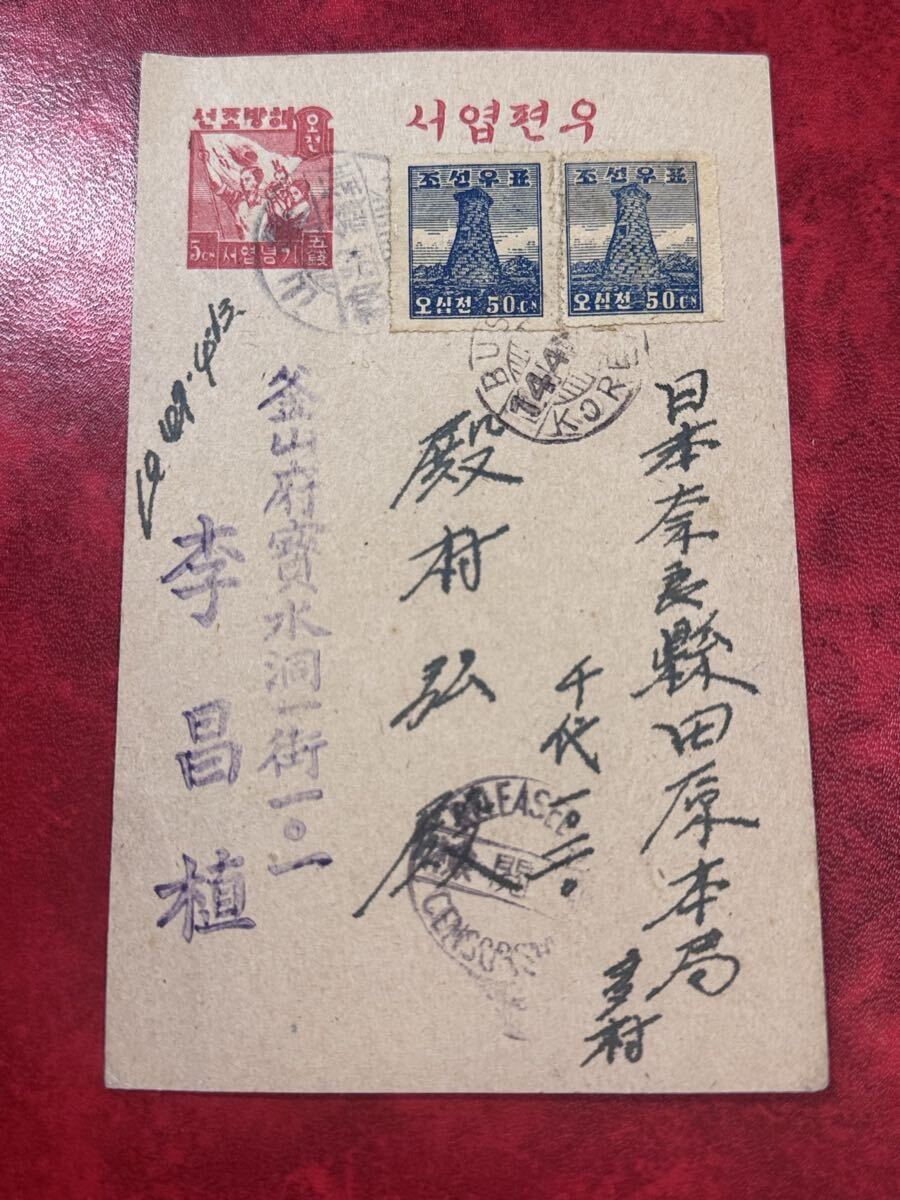 우편엽서
해방조선
오전
5CN
기념엽서
五錢
조선우표
오십전 50CN
조선우표
오십전 50CN
KORE
日本奈良縣田原本局
多村
千代
殿村弘殿
釜山府寶水洞一街一〇一
李昌植
RELEASED
CENSORSH